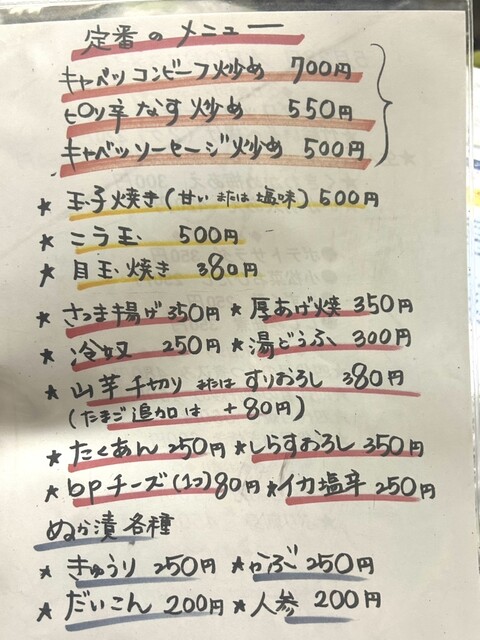 定番のメニュー
キャベツコンビーフ炒め 700円
ピリ辛なす炒め 550円
キャベツソーセージ炒め 500円
★ 玉子焼き(甘い または 塩味) 500円
★ ニラ玉 500円
★ 目玉焼き 380円
★ さつま揚げ 350円 ★ 厚あげ焼 350円
★ 冷奴 250円 ★ 湯どうふ 300円
★ 山芋千切り または すりおろし 380円
(たまご追加は +80円)
★ たくあん 250円 ★ しらすおろし 350円
★ bpチーズ(1コ)80円 ★ イカ塩辛 250円
ぬか漬各種
★ きゅうり 250円 ★ かぶ 250円
★ だいこん 200円 ★ 人参 200円